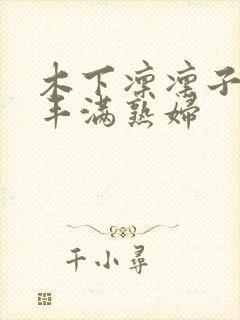 木下凛凛子
丰满熟妇
千小尋